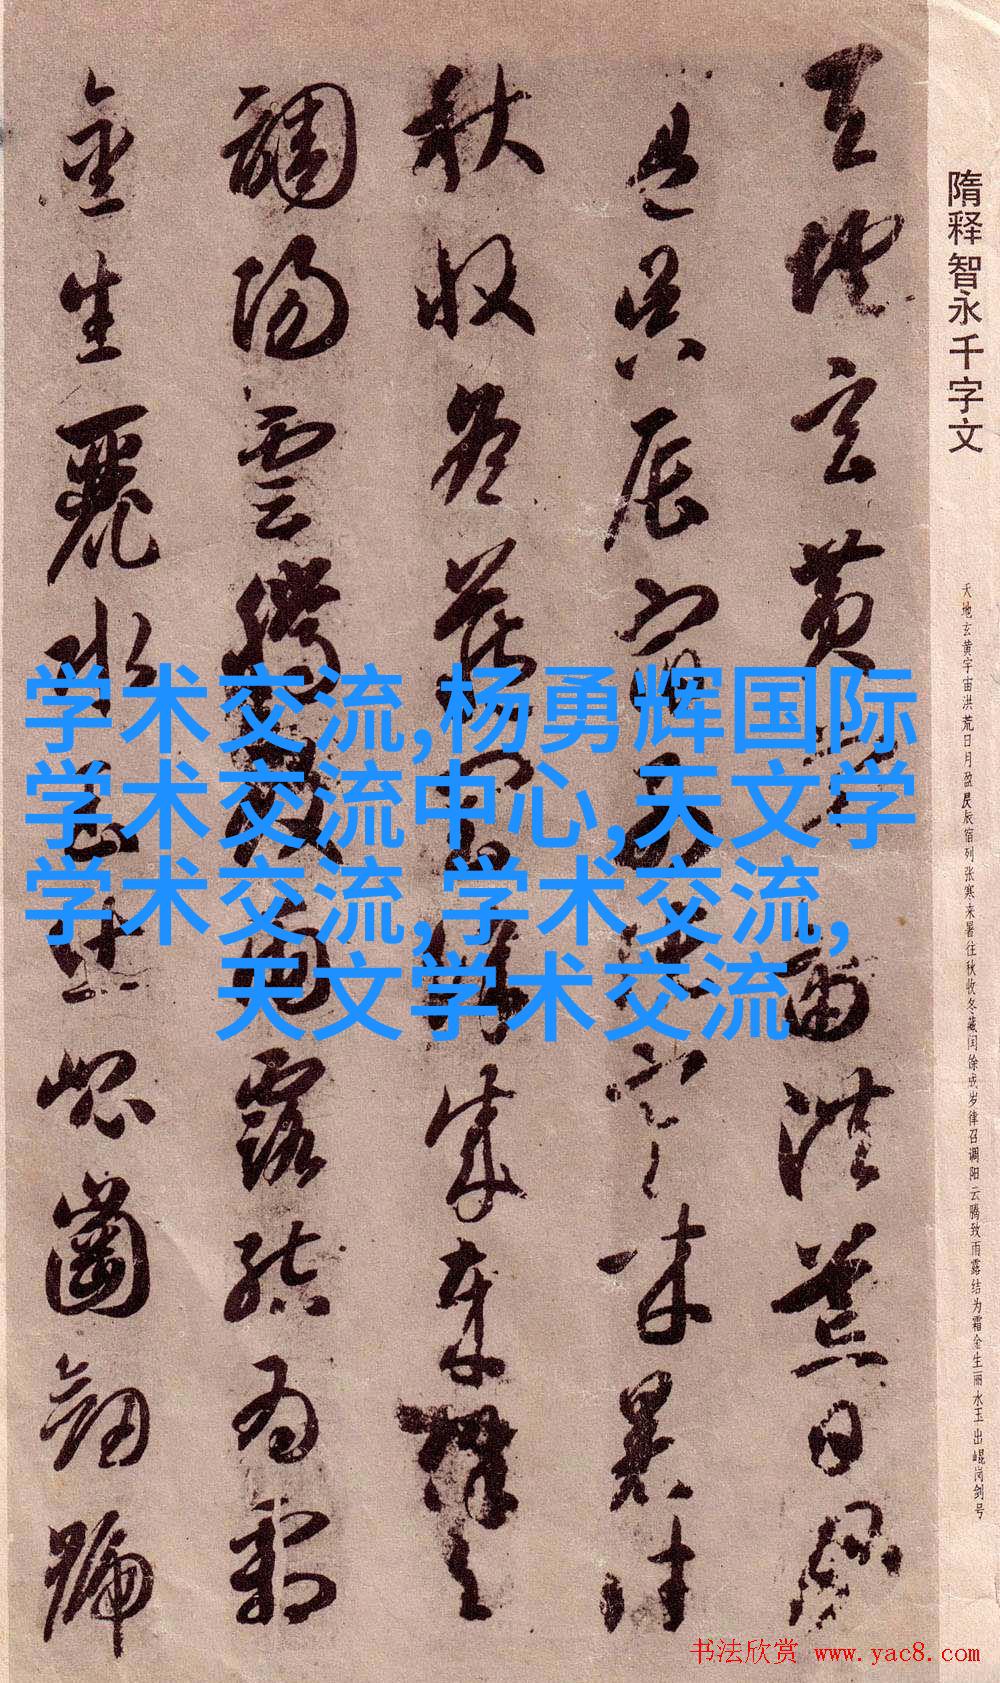 隋释智永千字文
天地玄黄宇宙洪荒日月盈昃辰宿列张寒来暑往秋收冬藏闰馀成岁律召调阳云腾致雨露结为霜金生丽水玉出崐岗剑号
天地玄黄宇宙洪荒日月
盈昃辰宿列张寒来暑往
秋收冬藏闰馀成岁律召
調陽雲騰致雨露結為霜
金生麗水玉出崐崗劒號
学术交流,杨勇辉国际
学术交流中心,天文学
学术交流,学术交流,
天文学术交流
书法欣赏 www.yac8.com